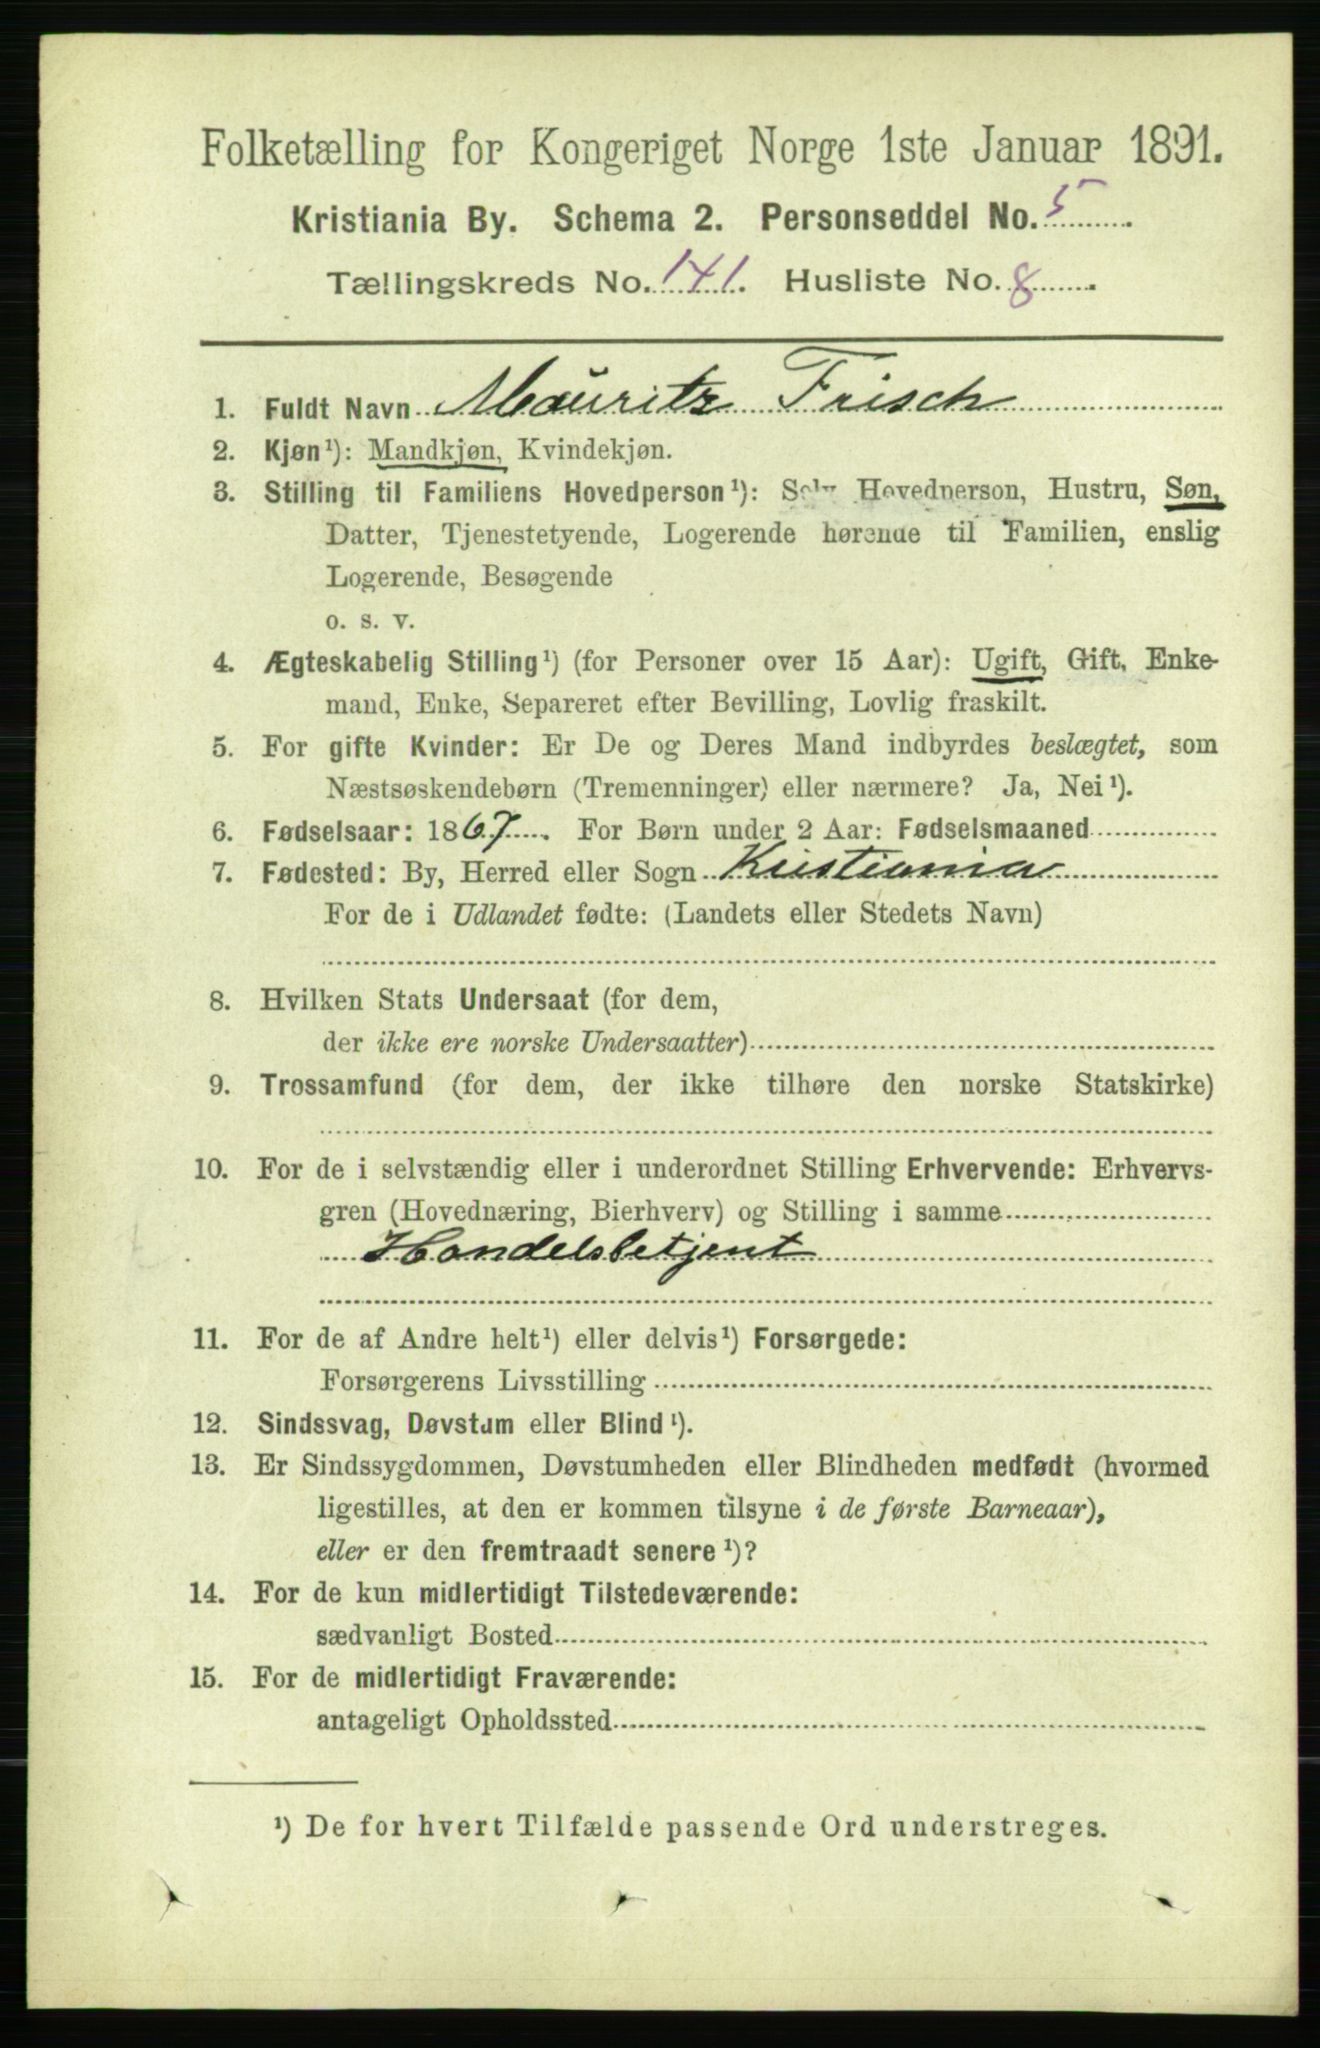 Folketælling for Kongeriget Norge 1ste Januar 1891.
Kristiania By. Schema 2. Personseddel No. 5
Tællingskreds No. 141. Husliste No. 8
1. Fuldt Navn Mauritz Frisch
2. Kjøn¹): Mandkjøn, Kvindekjøn.
3. Stilling til Familiens Hovedperson¹): Selv Hovedperson, Hustru, Søn,
Datter, Tjenestetyende, Logerende hørende til Familien, enslig
Logerende, Besøgende
o. s. v.
4. Ægteskabelig Stilling¹) (for Personer over 15 Aar): Ugift, Gift, Enke-
mand, Enke, Separeret efter Bevilling, Lovlig fraskilt.
5. For gifte Kvinder: Er De og Deres Mand indbyrdes beslægtet, som
Næstsøskendebørn (Tremenninger) eller nærmere? Ja, Nei¹).
6. Fødselsaar: 1867. For Børn under 2 Aar: Fødselsmaaned
7. Fødested: By, Herred eller Sogn Kristiania
For de i Udlandet fødte: (Landets eller Stedets Navn)
8. Hvilken Stats Undersaat (for dem,
der ikke ere norske Undersaatter)
9. Trossamfund (for dem, der ikke tilhøre den norske Statskirke)
10. For de i selvstændig eller i underordnet Stilling Erhvervende: Erhvervs-
gren (Hovednæring, Bierhverv) og Stilling i samme
Handelsbetjent
11. For de af Andre helt¹) eller delvis¹) Forsørgede:
Forsørgerens Livsstilling
12. Sindssvag, Døvstum eller Blind¹).
13. Er Sindssygdommen, Døvstumheden eller Blindheden medfødt (hvormed
ligestilles, at den er kommen tilsyne i de første Barneaar),
eller er den fremtraadt senere¹)?
14. For de kun midlertidigt Tilstedeværende:
sædvanligt Bosted
15. For de midlertidigt Fraværende:
antageligt Opholdssted
¹) De for hvert Tilfælde passende Ord understreges.